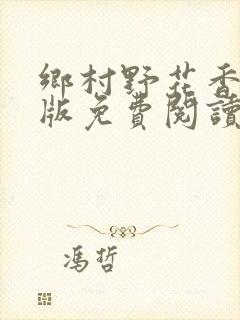 鄉村野花香
版免費閱讀
馮哲